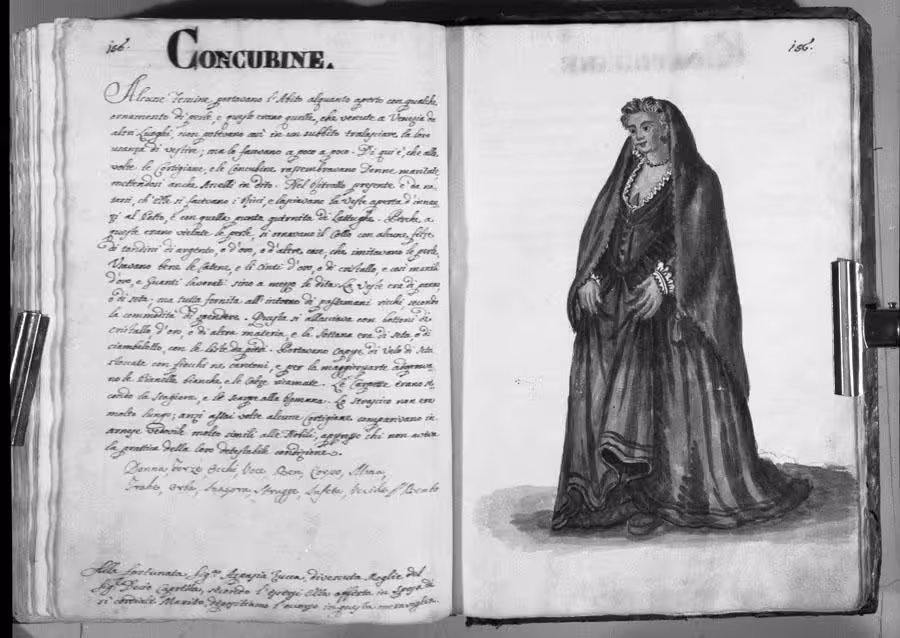 156.
CONCUBINE.
Alcune Femine, portavano l'Abito alquanto aperto con qualche
ornamento di perle, e queste erano quelle, che venute a Venezia da
altri Luoghi, non potevano così in un subbito tralasciare la loro
usanza di vestire; ma lo facevano a poco a poco. Di qui è, che alle
volte le Cortigiane, e le Concubine rassembravano Donne maritate,
mettendosi anche Anelli in dito. Nel Ritratto presente è da no-
tarsi, ch'elle si facevano i Ricci, e lasciavano la Veste aperta d'innan-
zi al Petto, e con quella punta guernita di Lattughe. Perche, a
queste erano vietate le perle, si ornavano il Collo con alcune,
di tondini di argento, o d'oro, o d'altre cose, che imitavano le perle.
Usavano bene le Catene, e li Cinti d'oro, o di cristallo, e così manili
d'oro, e Guanti lavorati sino a mezzo le dita. La Veste era di panno
o di seta, ma tutta fornita all'intorno di passamani ricchi, secondo
la commodità di spendere. Questa si allacciava con bottoni di
cristallo d'oro, o di altra materia, e la Sottana era di Seta, o di
ciambelotto, con le liste da piedi. Portavano Cappe di Velo di Seta
con fiocchi ne cantoni, e per la maggior parte adoprava-
no le Pianelle bianche, e le Calze ricamate. Le Carpette erano se-
condo la Stagione, e le Scarpe alla Romana. Lo strascico non era
molto lungo; anzi assai volte alcune Cortigiane comparivano in
arnese Vedovile molto simili alle Nobili, appresso chi non aveva
la prattica della loro detestabile condizione.
Donna, Forze, Occhi, Voce, Ben, Corpo, Alma,
Strugge
Alla fortunata Sig.ra Zucca, divenuta Moglie del
Sig.r Decio
si cordiale Marito, in questa meraviglia.
156.